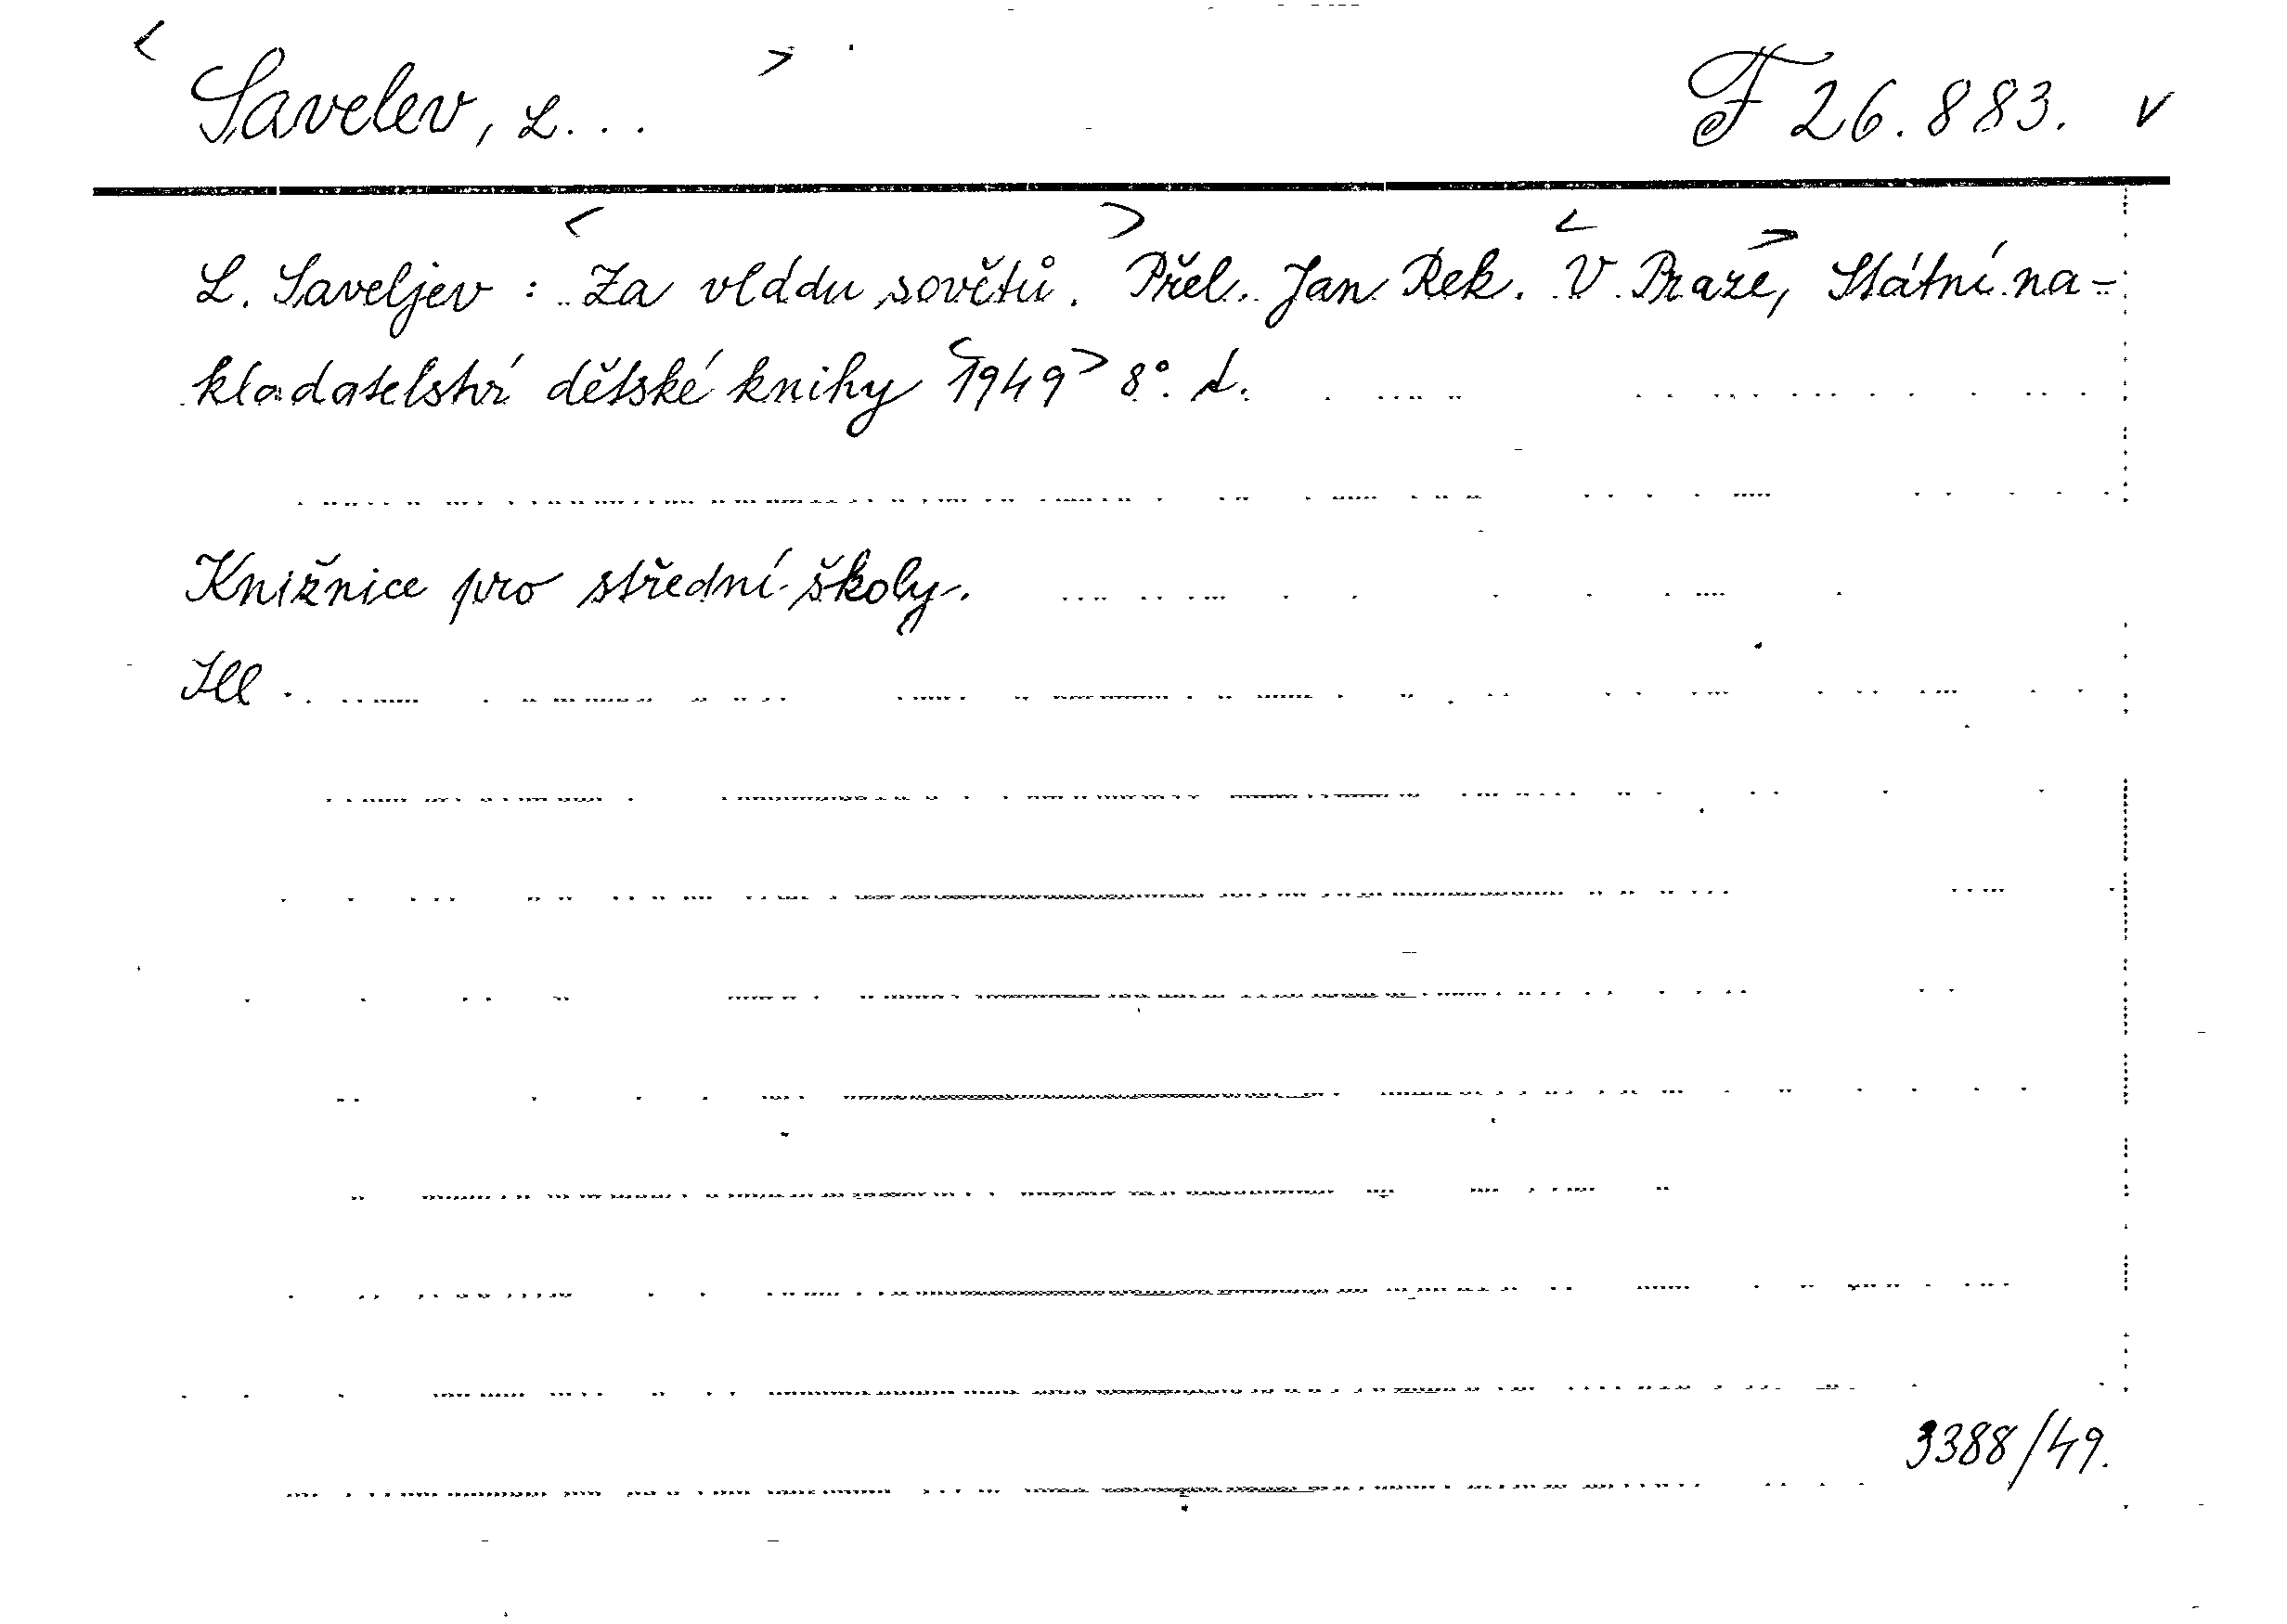 <Savelev, L...> F 26.883. v
L. Saveljev: <Za vládu sovětů.> Přel. Jan Rek. <V Praze>, Státní na-
kladatelství dětské knihy <1949> 8°.
Knižnice pro střední školy.
Ill.
3388/49.